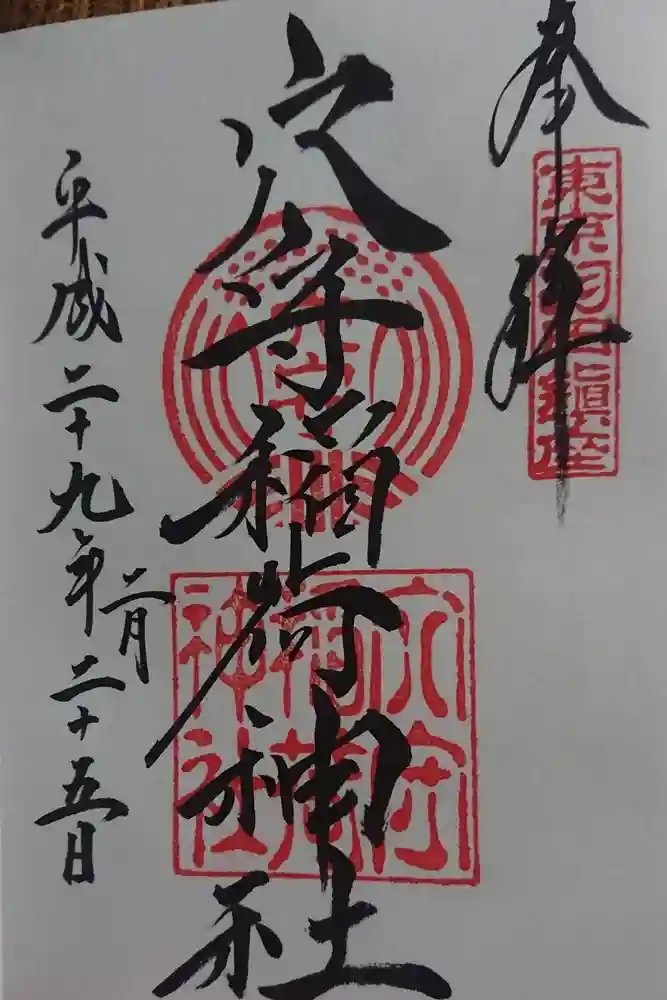 奉拝
東京羽田鎮座
穴守稲荷神社
穴守
穴守
稲荷
神社
平成二十九年二月二十五日